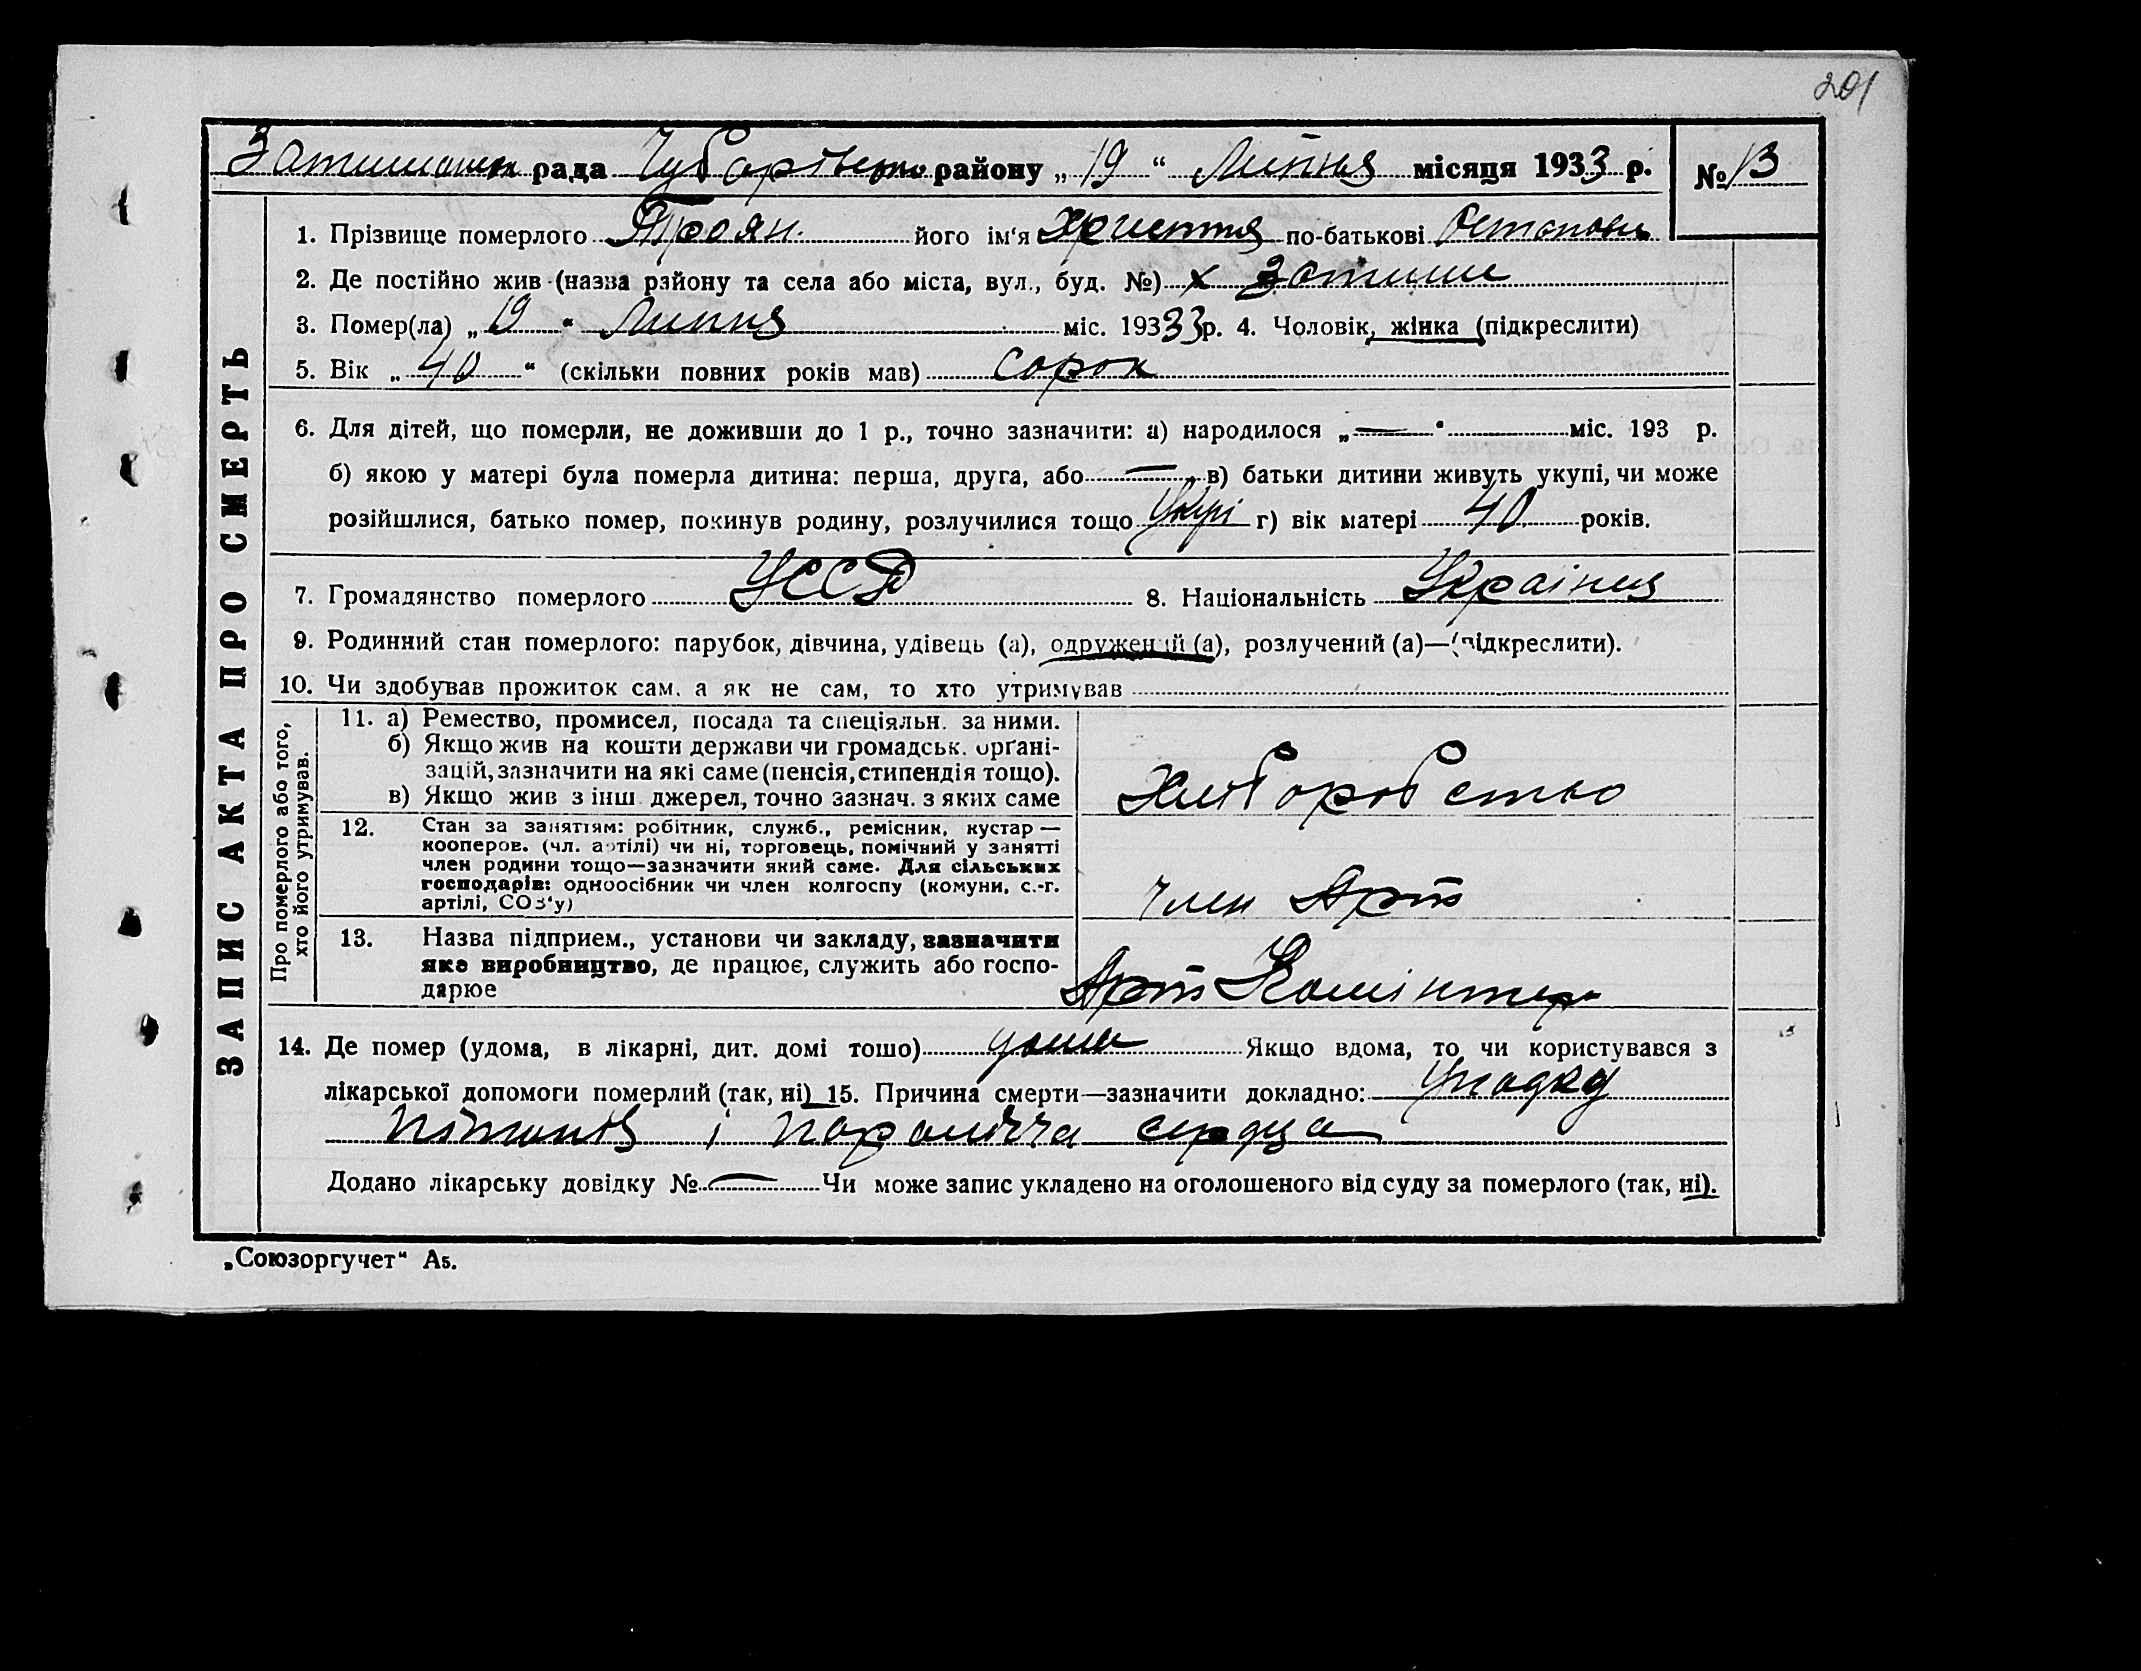 201
рада району „19“ Липня місяця 1933 р. №13
1. Прізвище померлого Троян його ім'я Христля по-батькові Остапові
2. Де постійно жив (назва району та села або міста, вул., буд. №) х Затишш
3. Помер(ла) „19“ Липня міс. 193 33 р. 4. Чоловік, жінка (підкреслити)
5. Вік „40“ (скільки повних років мав) сорок
6. Для дітей, що померли, не доживши до 1 р., точно зазначити: а) народилося „—“ міс. 193 р.
б) якою у матері була померла дитина: перша, друга, або — в) батьки дитини живуть укупі, чи може
розійшлися, батько помер, покинув родину, розлучилися тощо Укупі г) вік матері 40 років.
7. Громадянство померлого УССР 8. Національність Українця
9. Родинний стан померлого: парубок, дівчина, удівець (а), одружений (а), розлучений (а)—(підкреслити).
10. Чи здобував прожиток сам, а як не сам, то хто утримував
ЗАПИС АКТА ПРО СМЕРТЬ
Про померлого або того,
хто його утримував.
11. а) Ремество, промисел, посада та спеціяльн. за ними.
б) Якщо жив на кошти держави чи громадськ. орґані-
зацій, зазначити на які саме (пенсія, стипендія тощо).
в) Якщо жив з інш джерел, точно зазнач. з яких саме
Хліборобство
12. Стан за заняттям: робітник, служб., ремісник, кустар —
кооперов. (чл. артілі) чи ні, торговець, помічний у занятті
член родини тощо—зазначити який саме. Для сільських
господарів: одноосібник чи член колгоспу (комуни, с.-г.
артілі, СОЗ'у)
член Арт
13. Назва підприєм., установи чи закладу, зазначити
яке виробництво, де працює, служить або госпо-
дарює
Арт Комінтер
14. Де помер (удома, в лікарні, дит. домі тощо) удома Якщо вдома, то чи користувався з
лікарської допомоги померлий (так, ні) 15. Причина смерти—зазначити докладно: Упадку
і параліча сердца
Додано лікарську довідку № — Чи може запис укладено на оголошеного від суду за померлого (так, ні).
„Союзоргучет“ А5.